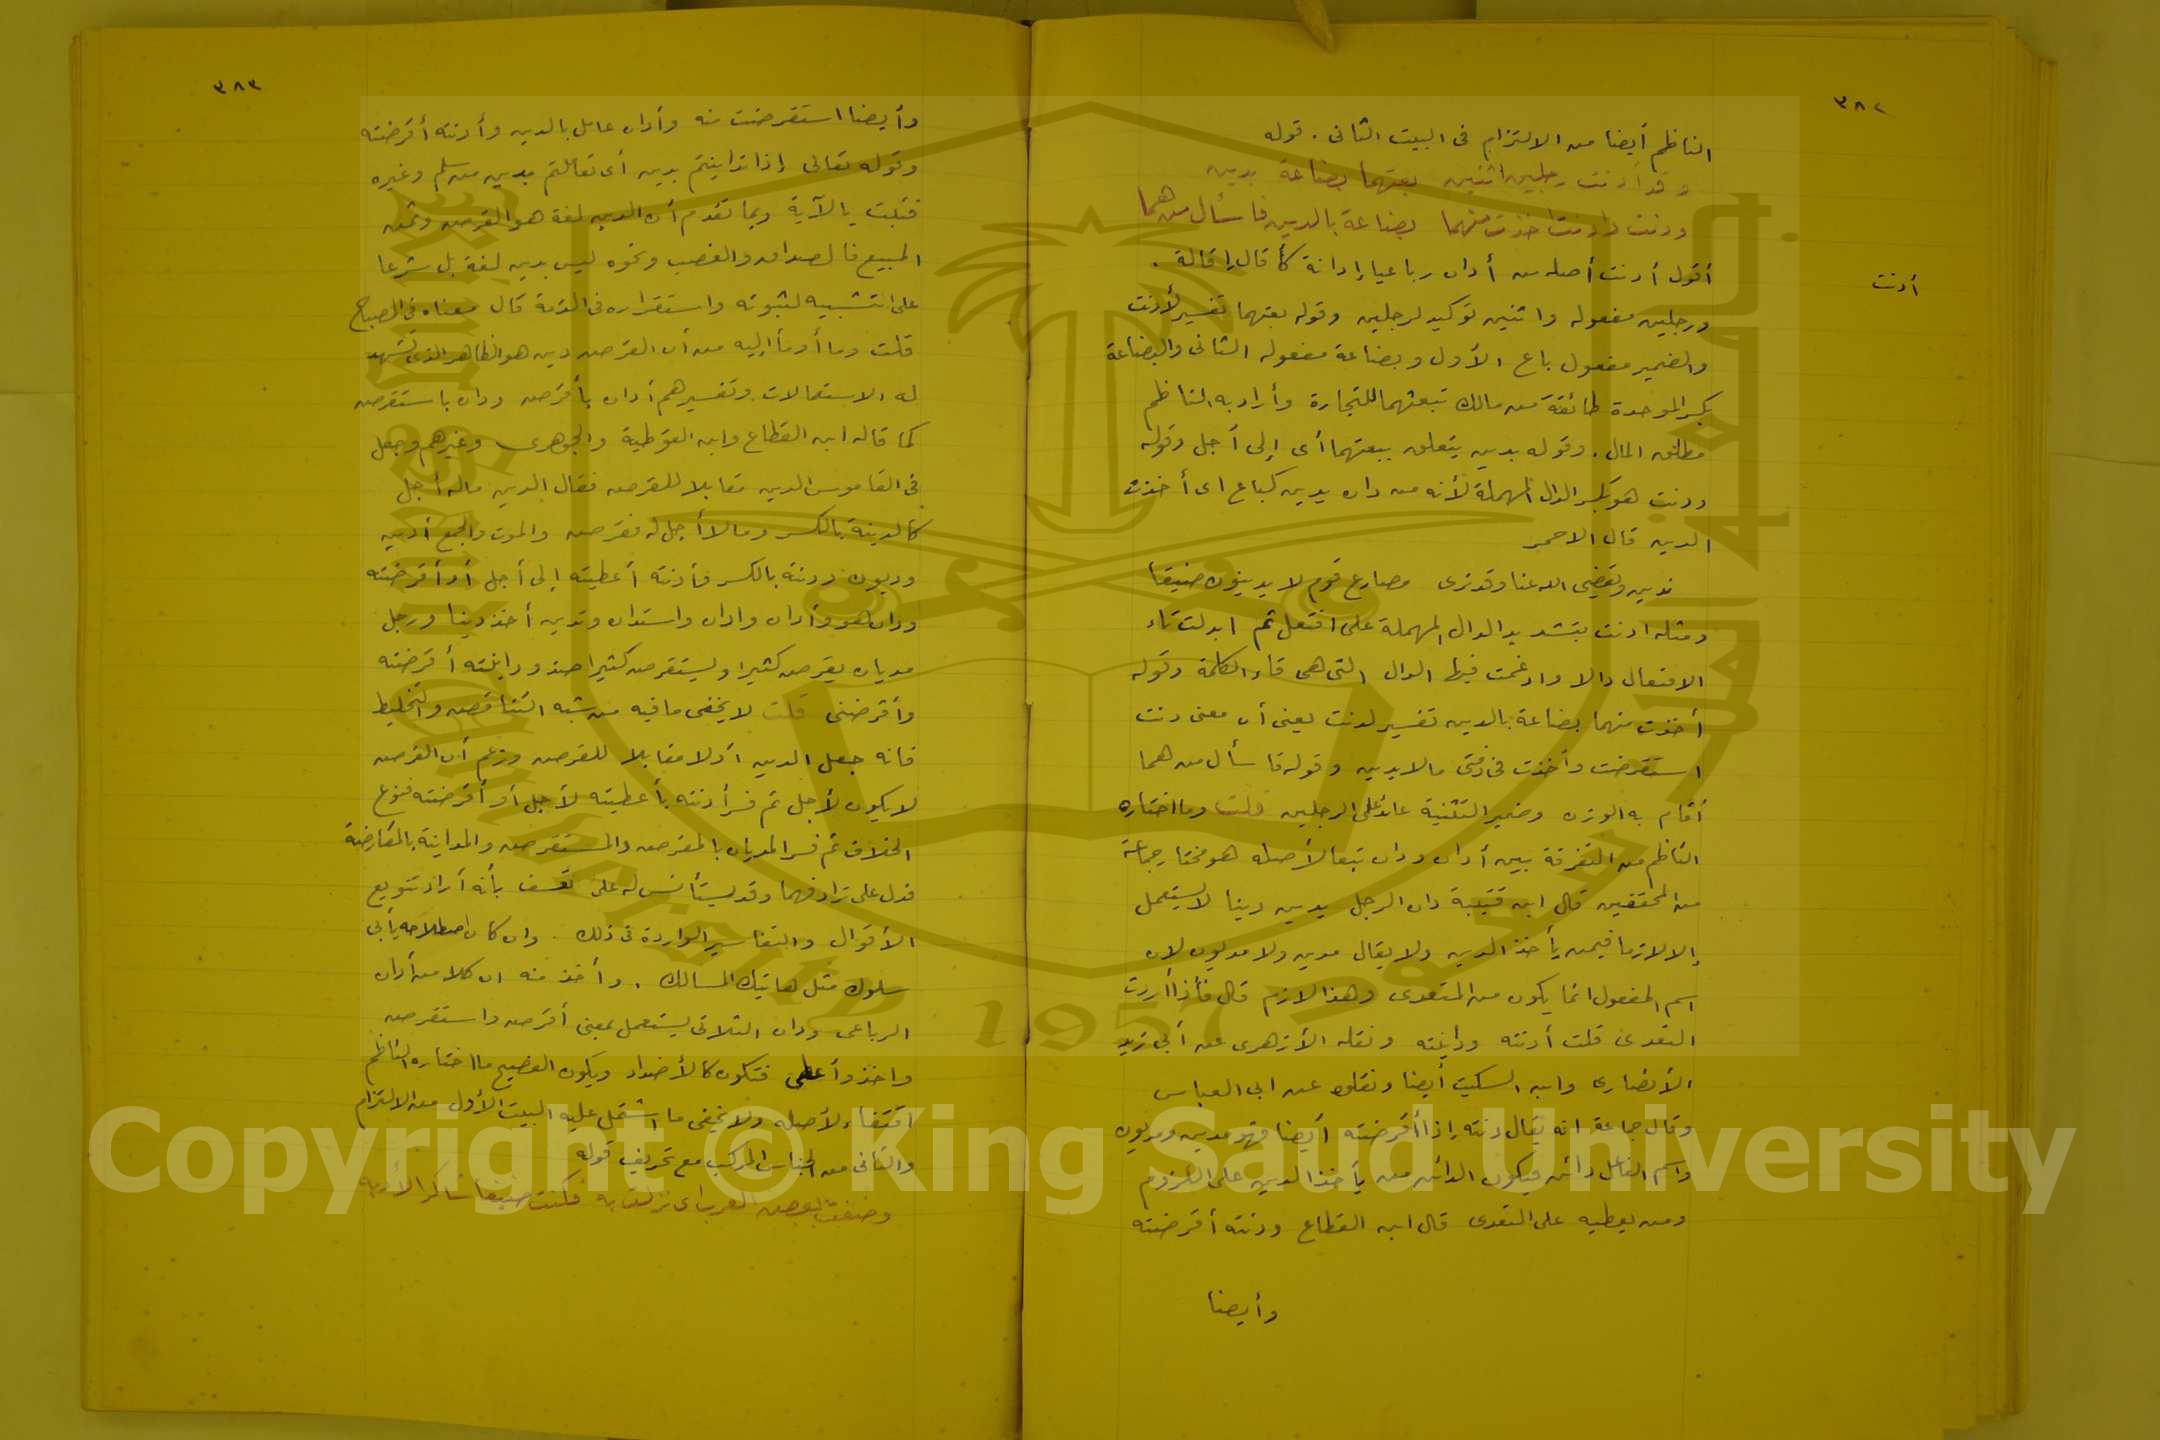 ٣٨٢
الناظم أيضا من الالتزام فى البيت الثانى . قوله
وقد أدنت رجلين اثنين بعتهما بضاعة بدين
ودنت وادنت اخذت منهما بضاعة بالدين فاسأل من هما
أدنت
أقول أدنت أصله من أدان رباعيا إدانة كأقال إقالة .
ورجلين مفعوله واثنين توكيد لرجلين وقوله بعتهما تفسير لأدنت
والضمير مفعول باع الأول وبضاعة مفعوله الثانى والبضاعة
بكسر الموحدة طائفة من مالك تبعثها للتجارة وأراد به الناظم
مطلق المال . وقوله بدين يتعلق ببعتهما أى إلى أجل وقوله
ودنت هو بكسر الدال المهملة لأنه من دان يدين كباع اى أخذت
الدين قال الاحمر
ندين ويقضى الله عنا وقد نرى مصارع قوم لا يدينون ضيقا
ومثله ادنت بتشديد الدال المهملة على افتعل ثم ابدلت تاء
الافتعال دالا وادغمت فيها الدال التى هى فاء الكلمة وقوله
أخذت منهما بضاعة بالدين تفسير لدنت يعنى أن معنى دنت
استقرضت وأخذت فى ذمتى مالا بدين وقوله فاسأل من هما
أقام به الوزن وضمير التثنية عائد على الرجلين قلت وما اختاره
الناظم من التفرقة بين أدان ودان تبعا لأصله هو مختار جماعة
من المحققين قال ابن قتيبة دان الرجل يدين دينا لا يستعمل
إلا لازما فيمن يأخذ الدين ولا يقال مدين ولا مديون لان
اسم المفعول انما يكون من المتعدى وهذا لازم قال فأذا أردت
التعدى قلت أدنته وداينته ونقله الأزهرى عن أبى زيد
الأنصارى وابن السكيت أيضا ونقلوه عن ابى العباس
وقال جماعة انه يقال دنته إذا أقرضته أيضا فهو مدين ومديون
واسم الفاعل دائن فيكون الدائن من يأخذ الدين على اللزوم
ومن يعطيه على التعدى قال ابن القطاع ودنته أقرضته
وأيضا
٣٨٣
وأيضا استقرضت منه وأدان عامل بالدين وأدنته أقرضته
وقوله تعالى إذا تداينتم بدين أى تعاملتم بدين من سلم وغيره
فثبت بالآية وبما تقدم أن الدين لغة هو القرض وثمن
المبيع فالصداق والغصب ونحوه ليس بدين لغة بل شرعا
على التشبيه لثبوته واستقراره فى الذمة قال معناه فى المصباح
قلت وما أومأ إليه من أن القرض دين هو الظاهر الذى تشهد
له الاستعمالات وتفسيرهم أدان بأقرض ودان باستقرض
كما قاله ابن القطاع وابن القوطية والجوهرى وغيرهم وجعل
فى القاموس الدين مقابلا للقرض فقال الدين ماله أجل
كالدينة بالكسر وما لا أجل له فقرض والموت والجمع أدين
وديون ودنته بالكسر وأدنته أعطيته إلى أجل أو أقرضته
ودان هو وأدان وادان واستدان وتدين أخذ دينا ورجل
مديان يقرض كثيرا ويستقرض كثيرا ضد وداينته أقرضته
وأقرضنى قلت لا يخفى ما فيه من شبه التناقض والتخليط
فانه جعل الدين أولا مقابلا للقرض وزعم أن القرض
لا يكون لأجل ثم فسر أدنته بأعطيته لأجل أو أقرضته فنوع
الخلاف ثم فسر المديان بالمقرض والمستقرض والمداينة بالمقارضة
فدل على ترادفهما وقد يستأنس له على تعسف بأنه أراد تنويع
الأقوال والتفاسير الواردة فى ذلك . وان كان اصطلاحه يأبى
سلوك مثل هاتيك المسالك . وأخذ منه ان كلا من أدان
الرباعى ودان الثلاثى يستعمل بمعنى أقرض واستقرض
واخذ وأعطى فتكون كالأضداد ويكون الفصيح ما اختاره الناظم
اقتفاء لأصله ولا يخفى ما اشتمل عليه البيت الأول من الالتزام
والثانى من الجناس المركب مع تحريف قوله
وضفت بعض العرب اى نزلت به فكنت ضيفا شاكرا لأدبه
Copyright © King Saud University
1957